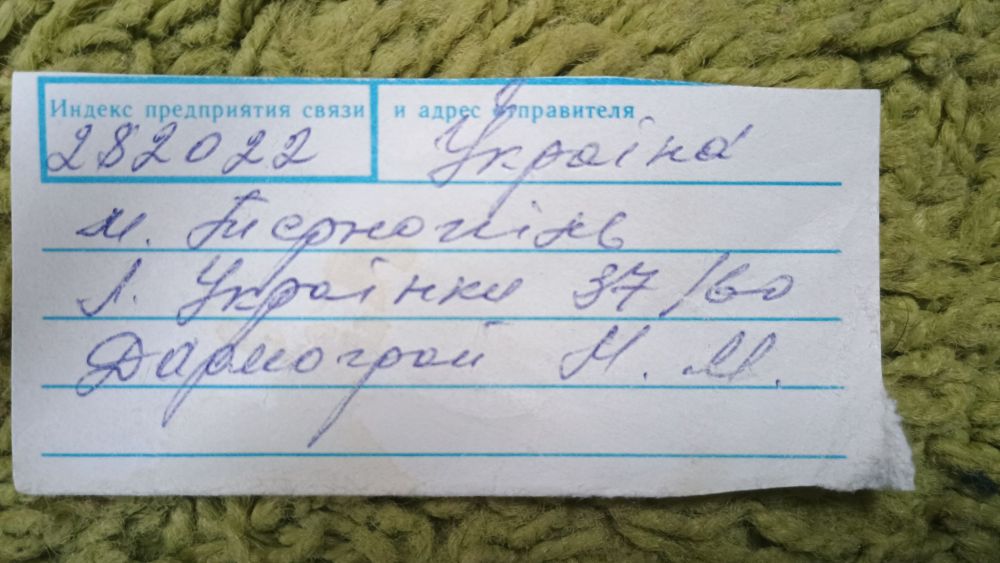 Индекс предприятия связи и адрес отправителя
282022 Україна
м. Тернопіль
Л. Українки 37/60
Дармограй Н. М.